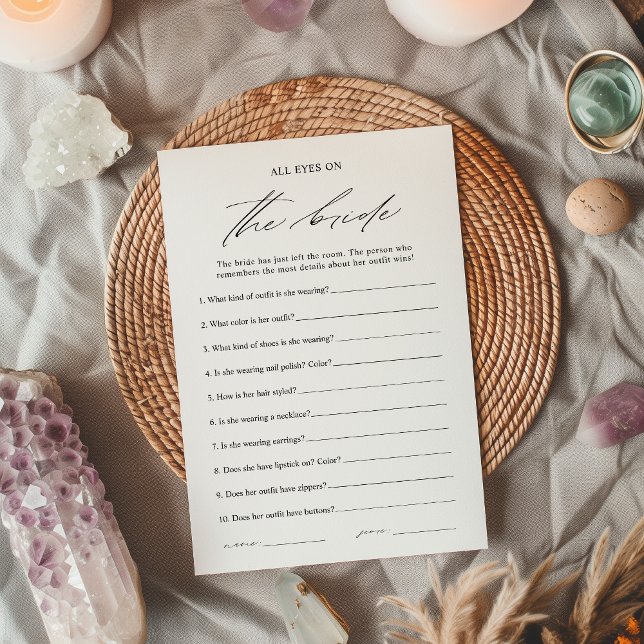 ALL EYES ON
the bride
The bride has just left the room. The person who
remembers the most details about her outfit wins!
1. What kind of outfit is she wearing?
2. What color is her outfit?
3. What kind of shoes is she wearing?
4. Is she wearing nail polish? Color?
5. How is her hair styled?
6. Is she wearing a necklace?
7. Is she wearing earrings?
8. Does she have lipstick on? Color?
9. Does her outfit have zippers?
10. Does her outfit have buttons?
name: score: